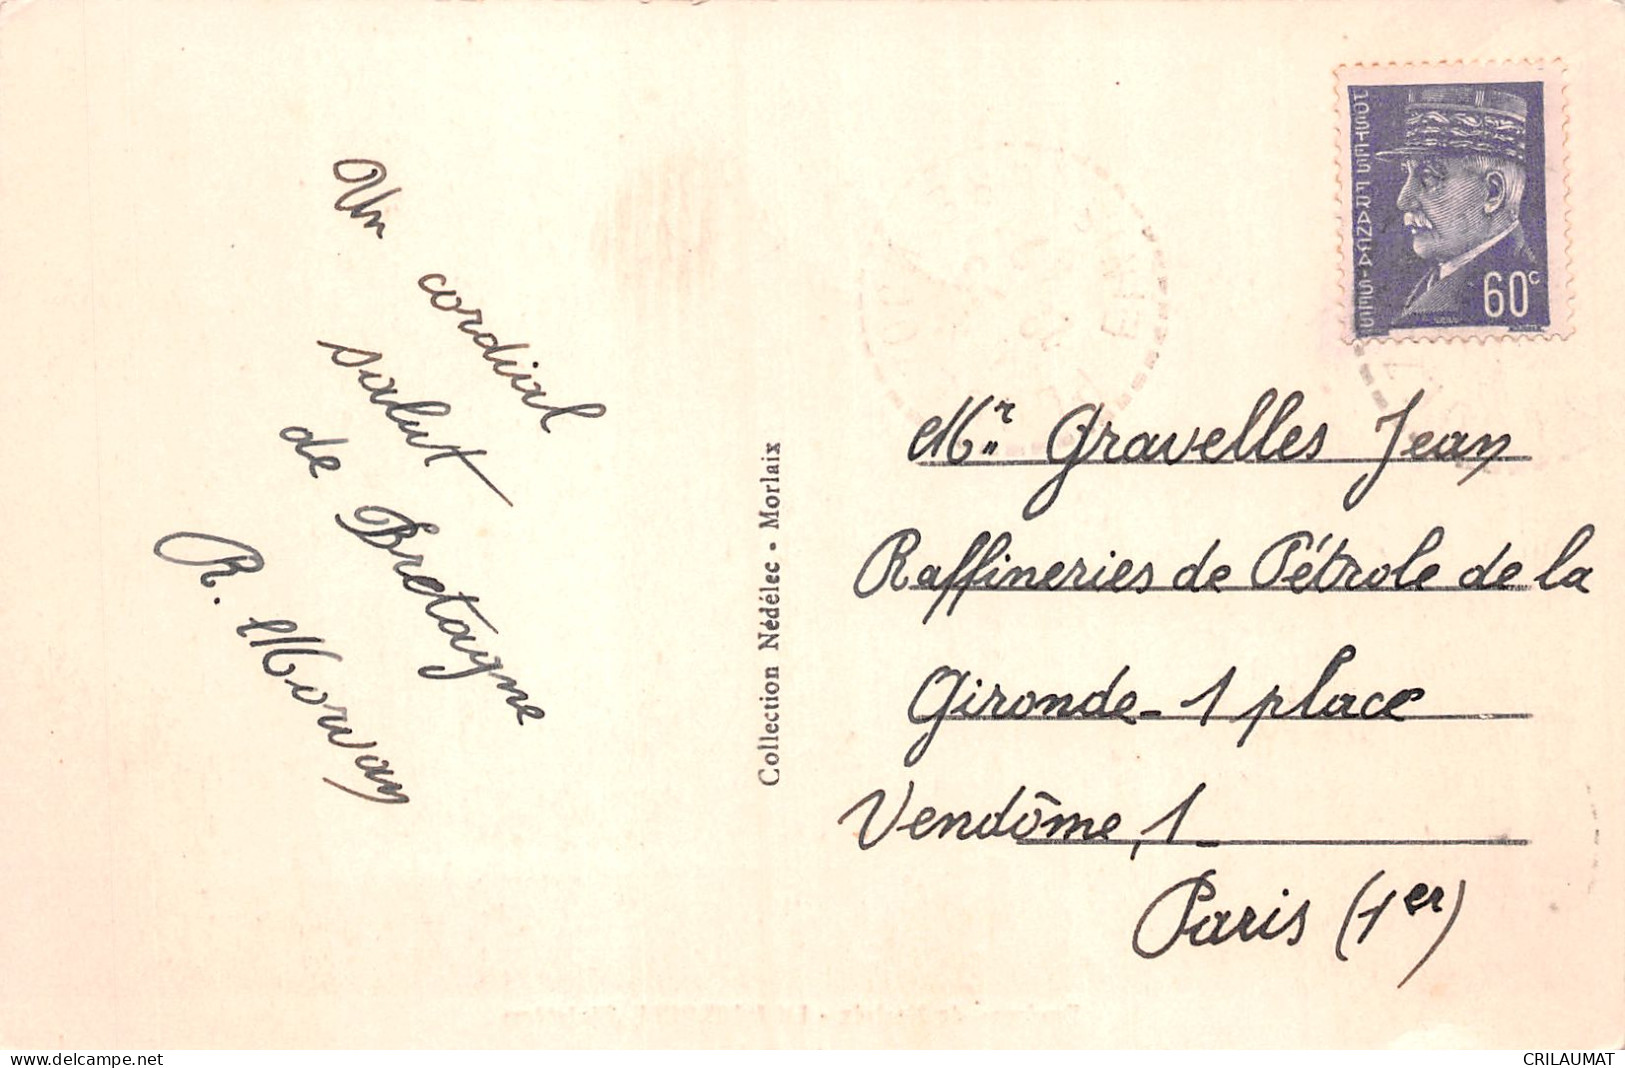 Un
cordial
salut
de Bretagne
R. Morvan
Collection Nédélec - Morlaix
POSTES FRANÇAISES
60c
Mr Gravelles Jean
Raffineries de Pétrole de la
Gironde - 1 place
Vendôme, 1
Paris (1er)
delcampe.net
CRILAUMAT